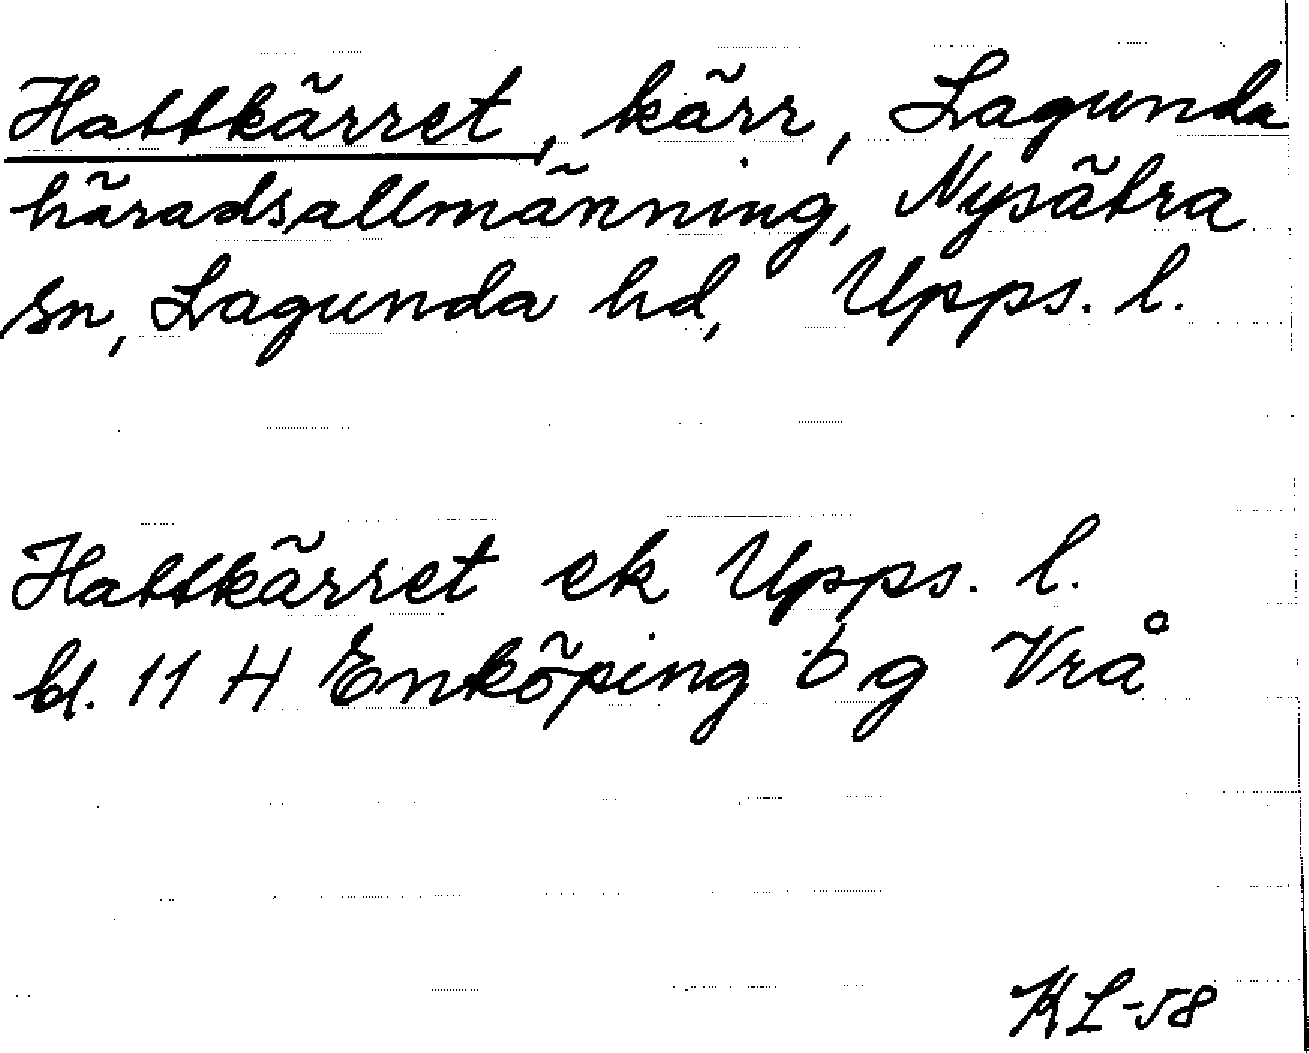 Hattkärret, kärr, Lagunda
häradsallmänning, Nysätra
sn, Lagunda hd, Upps. l.
Hattkärret ek Upps. l.
bl. 11 H Enköping 6 g Vrå
KL-58